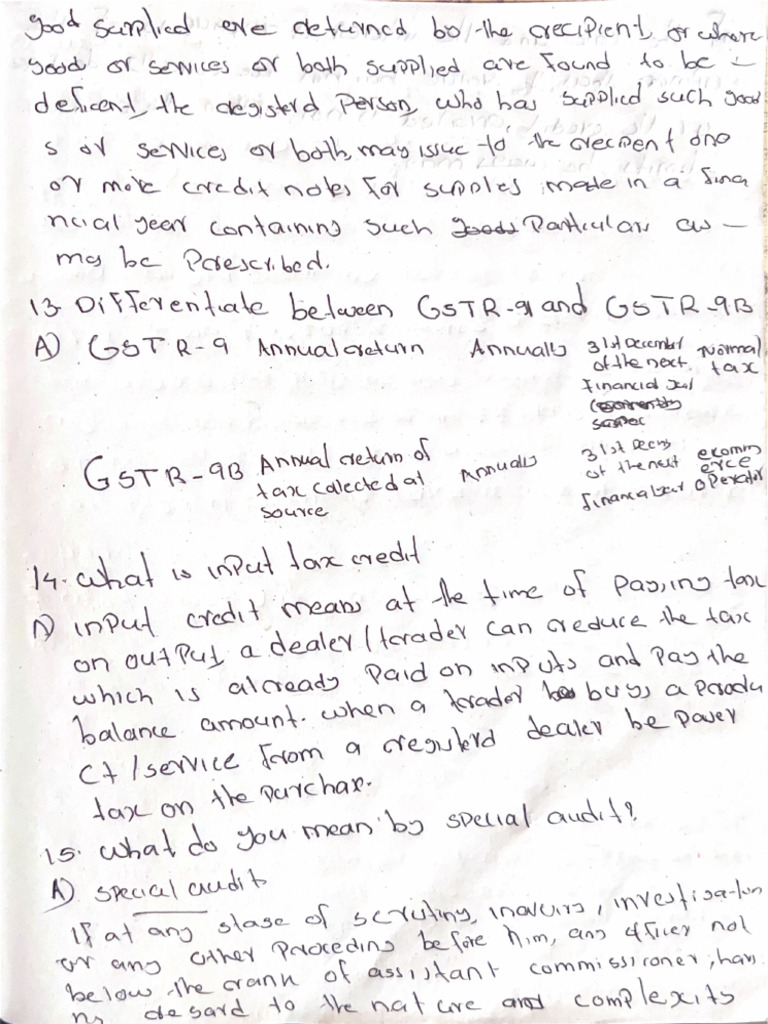 good supplied are returned bo the recipient, or where
good or services or both supplied are found to be -
deficent, the registerd person, who has supplied such good
s or services or both, may issue to the recipent one
or more credit notes for supplies made in a fina
ncial year containing such goods Particulars as -
may be Prescribed.
13. Differentiate between GSTR-9 and GSTR-9B
A) GSTR-9 Annual return Annually 31st December of the next financial year Normal tax
GSTR-9B Annual return of tax collected at source Annually 31st Decem of the next financial year ecommerce operator
14. What is input tax credit
A) input credit means at the time of paying tax
on output, a dealer/trader can reduce the tax
which is already paid on inputs and pay the
balance amount. when a trader buys a produ
ct/service from a registerd dealer be paver
tax on the purchax.
15. what do you mean by special audit?
A) special audit
If at any stage of scrutiny, inquiry, investigation
or any other proceding before him, any officer not
below the rank of assistant commissioner, hav
ng regard to the nature and complexity